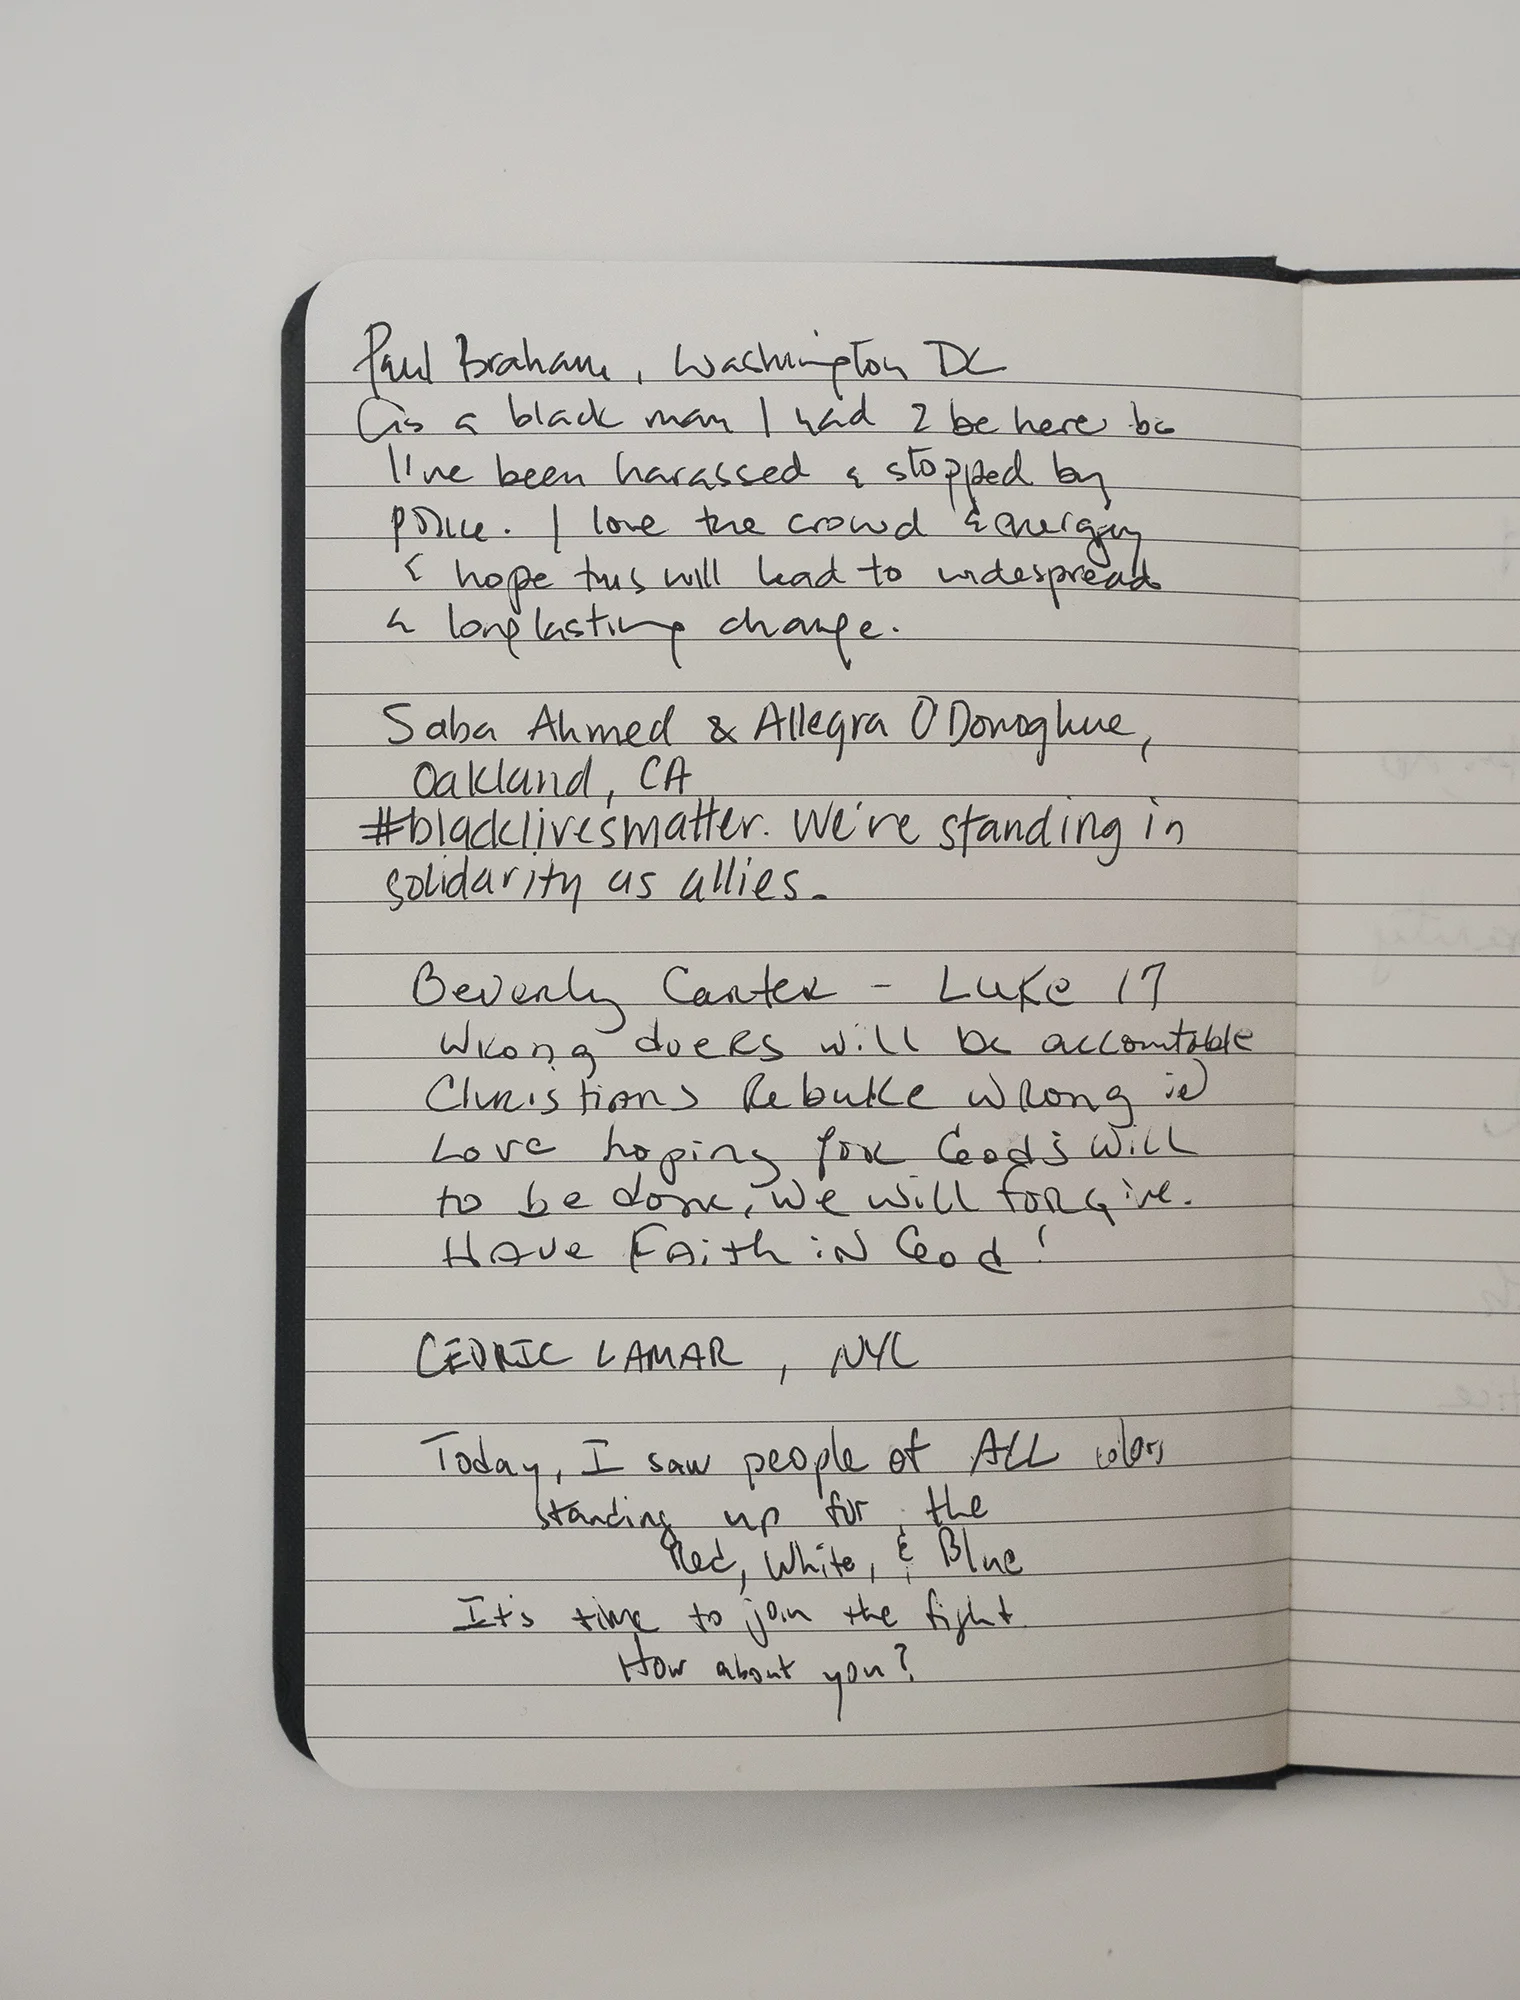 Paul Braham, Washington DC
As a black man I had 2 be here bc
I've been harassed & stopped by
police. I love the crowd & energy
& hope this will lead to widespread
& longlasting change.
Saba Ahmed & Allegra O'Donoghue,
Oakland, CA
#blacklivesmatter. We're standing in
solidarity as allies.
Beverly Carter - Luke 17
Wrong doers will be accountable
Christians Rebuke wrong in
Love hoping for God's will
to be done, we will forgive.
Have Faith in God!
CEDRIC LAMAR, NYC
Today, I saw people of ALL colors
standing up for the
Red, White, & Blue
It's time to join the fight.
How about you?